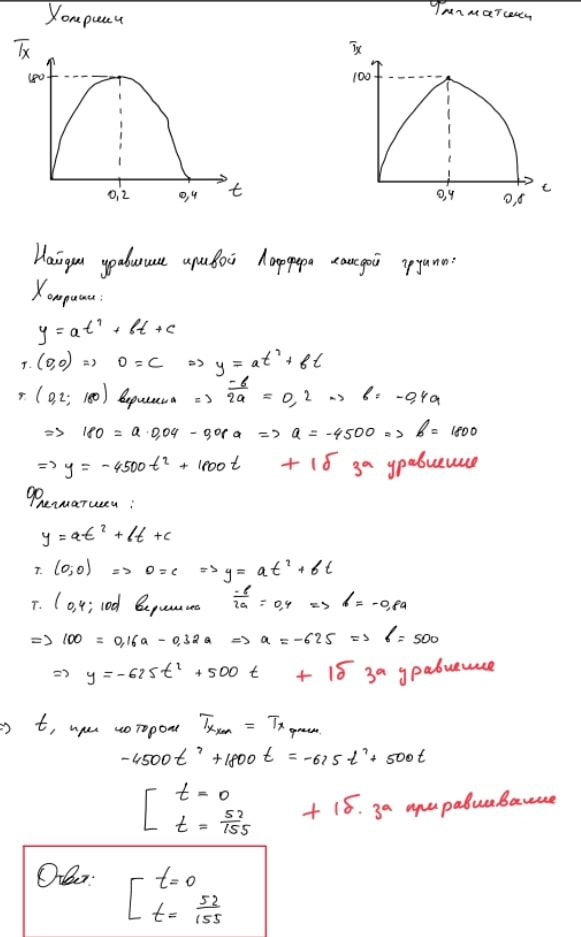 Холрики
Флегматики
Tx
180
0,2
0,4
t
Tx
100
0,4
0,8
t
Найдем уравнение кривой Лаффера каждой группы:
Холрики:
y = at² + bt + c
т. (0,0) => 0 = c => y = at² + bt
т. (0,2; 180) вершина => -b/2a = 0,2 => b = -0,4a
=> 180 = a·0,04 - 0,08a => a = -4500 => b = 1800
=> y = -4500t² + 1800t + 1б за уравнение
Флегматики:
y = at² + bt + c
т. (0;0) => 0 = c => y = at² + bt
т. (0,4; 100) вершина -b/2a = 0,4 => b = -0,8a
=> 100 = 0,16a - 0,32a => a = -625 => b = 500
=> y = -625t² + 500t + 1б за уравнение
=> t, при котором Tx хол = Tx флегм.
-4500t² + 1800t = -625t² + 500t
[ t = 0
t = 52/155 + 1б. за приравнивание
Ответ: [ t = 0
t = 52/155